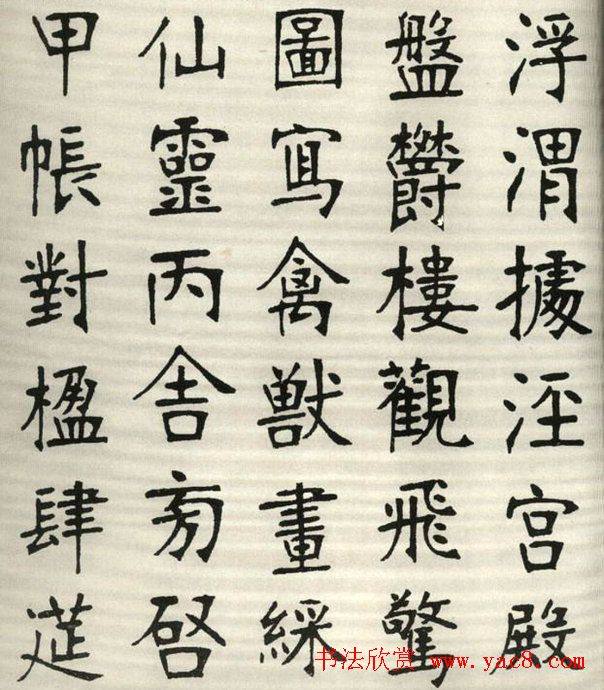 浮渭據涇宫殿
盤欝樓觀飛驚
圖寫禽獸畫綵
仙靈丙舍旁啓
甲帳對楹肆筵
书法欣赏 www.yac8.com